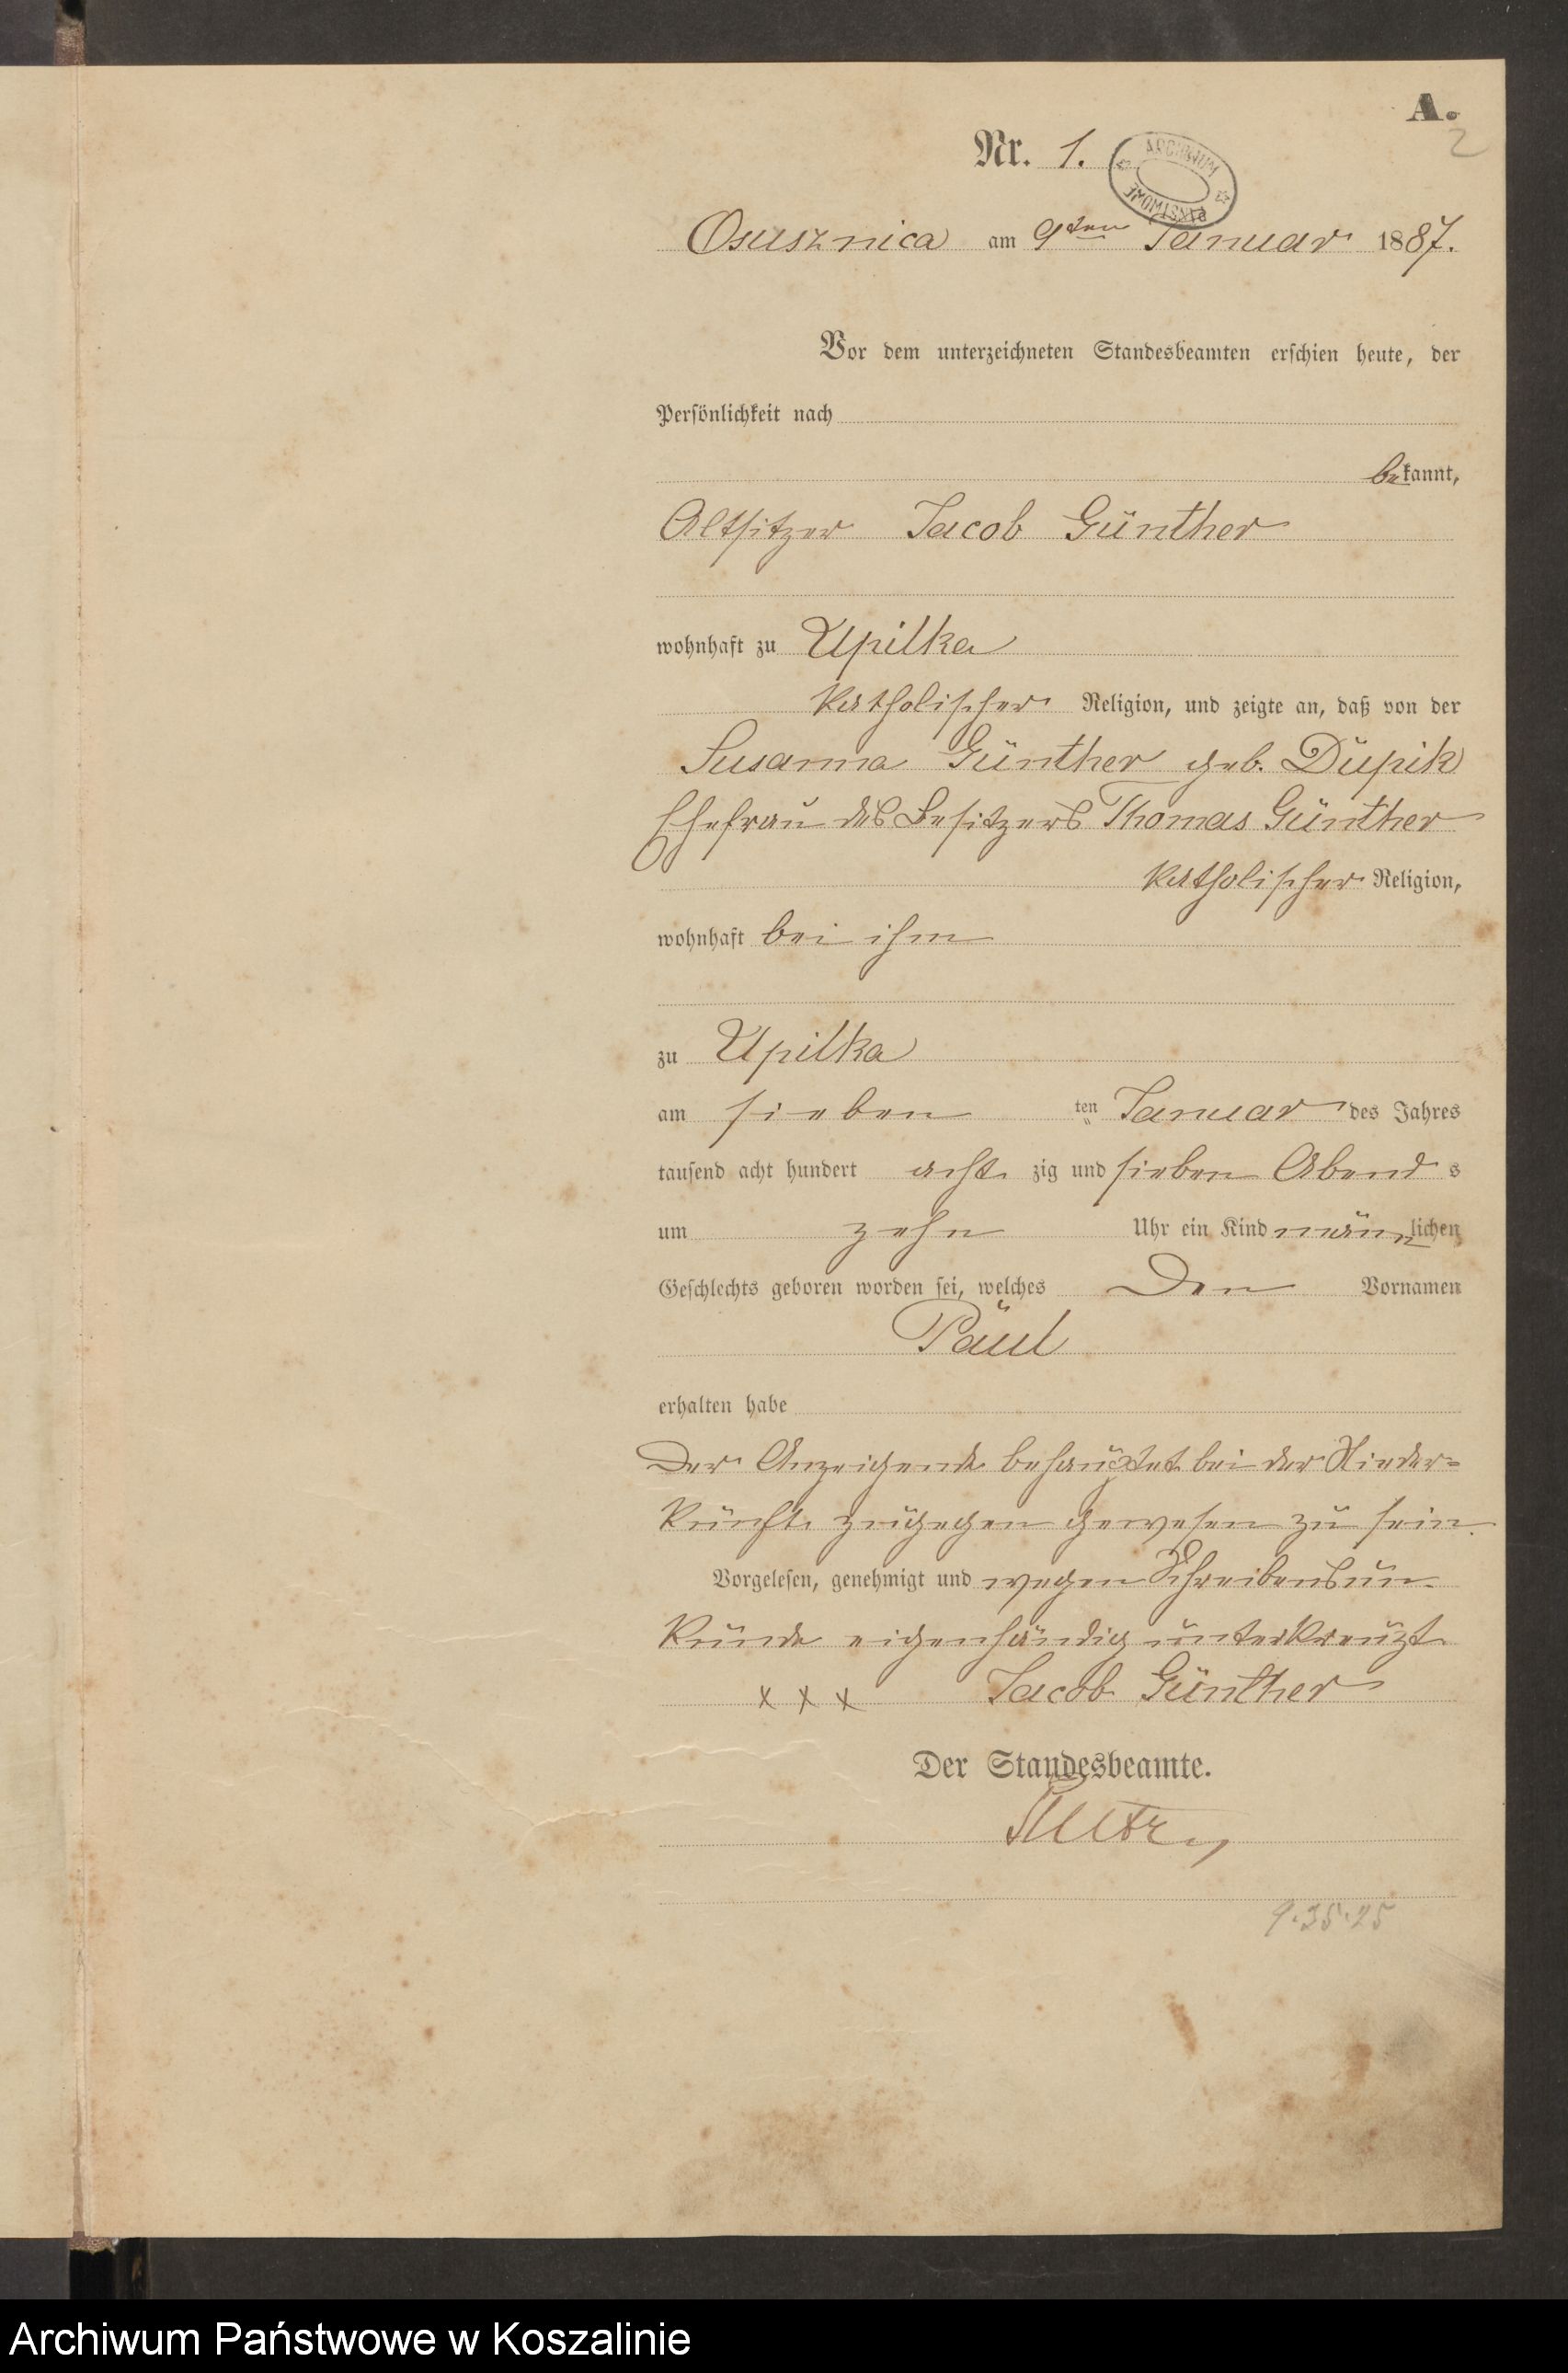 A.
2
Nr. 1.
ARCHIWUM
Osusznica am 9ten Januar 1887.
Vor dem unterzeichneten Standesbeamten erschien heute, der
Persönlichkeit nach
bekannt,
Altsitzer Jacob Günther
wohnhaft zu Upilka
katholischer Religion, und zeigte an, daß von der
Susanna Günther geb. Dupik
Ehefrau des Besitzers Thomas Günther
katholischer Religion,
wohnhaft bei ihm
zu Upilka
am sieben ten Januar des Jahres
tausend acht hundert acht zig und sieben Abend s
um zehn Uhr ein Kind männlichen
Geschlechts geboren worden sei, welches den Vornamen
Paul
erhalten habe
Der Anzeigende behauptet bei der Nieder-
kunft zugegen gewesen zu sein.
Vorgelesen, genehmigt und wegen Schreibensun-
kunde eigenhändig unterkreuzt
x x x Jacob Günther
Der Standesbeamte.
9.35.25
Archiwum Państwowe w Koszalinie